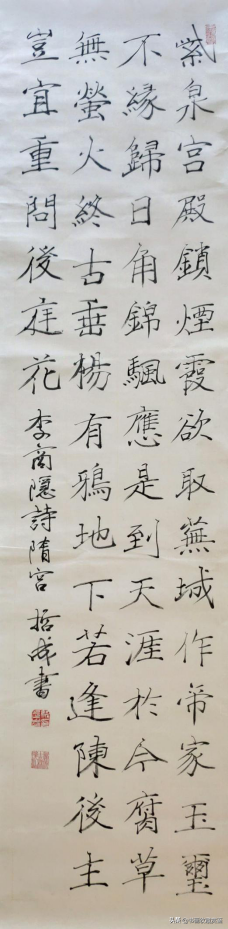 紫泉宮殿鎖煙霞欲取蕪城作帝家玉璽
不緣歸日角錦颿應是到天涯於今腐草
無螢火終古垂楊有鴉地下若逢陳後主
豈宜重問後庭花李商隱詩隋宮哲成書